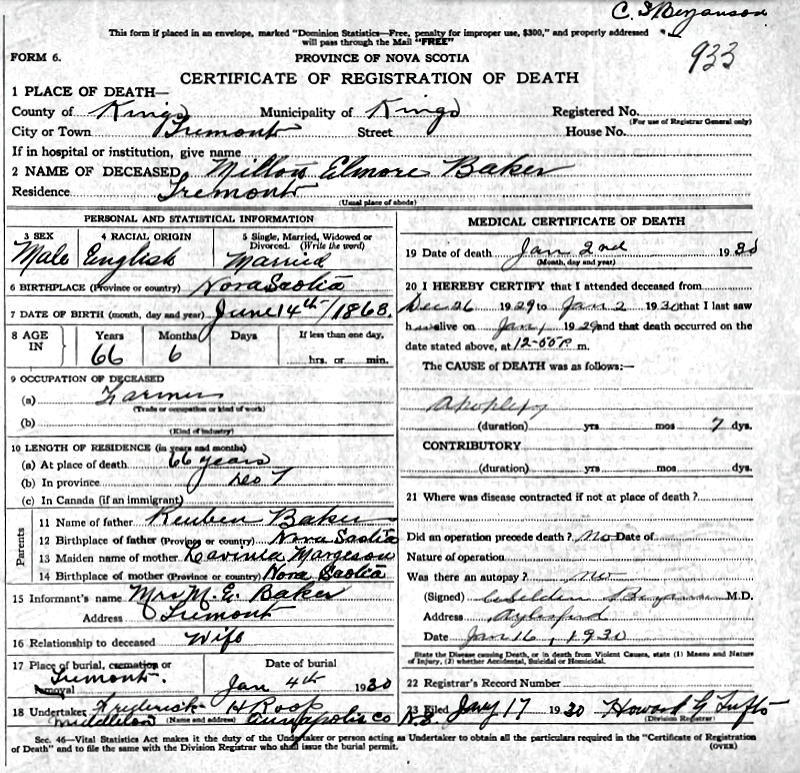 This form if placed in an envelope, marked "Dominion Statistics—Free, penalty for improper use, $300," and properly addressed
will pass through the Mail "FREE"
933
FORM 6.
PROVINCE OF NOVA SCOTIA
CERTIFICATE OF REGISTRATION OF DEATH
1 PLACE OF DEATH—
County of Kings Municipality of Kings Registered No.
(For use of Registrar General only)
City or Town Tremont Street House No.
If in hospital or institution, give name
2 NAME OF DECEASED Milton Elmore Baker
Residence Tremont
(Usual place of abode)
PERSONAL AND STATISTICAL INFORMATION
3 SEX 4 RACIAL ORIGIN 5 Single, Married, Widowed or
Divorced. (Write the word)
Male English Married
6 BIRTHPLACE (Province or country) Nova Scotia
7 DATE OF BIRTH (month, day and year) June 14th /1863.
8 AGE IN Years Months Days If less than one day,
66 6 hrs. or min.
9 OCCUPATION OF DECEASED
(a) Farmer
(Trade or occupation or kind of work)
(b)
(Kind of industry)
10 LENGTH OF RESIDENCE (in years and months)
(a) At place of death 66 years
(b) In province
(c) In Canada (if an immigrant)
Parents
11 Name of father Reuben Baker
12 Birthplace of father (Province or country) Nova Scotia
13 Maiden name of mother Lavinia Margeson
14 Birthplace of mother (Province or country) Nova Scotia
15 Informant's name Mrs M. E. Baker
Address Tremont
16 Relationship to deceased Wife
17 Place of burial, cremation or removal Date of burial
Tremont. Jan 4th 1930
18 Undertaker Frederick H Roop
Middleton (Name and address) Annapolis Co N.S.
MEDICAL CERTIFICATE OF DEATH
19 Date of death Jan 2nd 1930
(Month, day and year)
20 I HEREBY CERTIFY that I attended deceased from
Dec 26 1929 to Jan 2 1930 that I last saw
h alive on Jan 1 1929 and that death occurred on the
date stated above, at 12-00 P m.
The CAUSE of DEATH was as follows:—
Apoplexy
(duration) yrs mos 7 dys.
CONTRIBUTORY
(duration) yrs mos dys.
21 Where was disease contracted if not at place of death?
Did an operation precede death? No Date of
Nature of operation
Was there an autopsy? no
(Signed) M.D.
Address Aylesford
Date Jan 16, 1930
State the Disease causing Death, or in death from Violent Causes, state (1) Means and Nature
of Injury, (2) whether Accidental, Suicidal or Homicidal.
22 Registrar's Record Number
23 Filed Jany 17 1930 Howard G Tufts
(Division Registrar)
Sec. 46—Vital Statistics Act makes it the duty of the Undertaker or person acting as Undertaker to obtain all the particulars required in the "Certificate of Registration
of Death" and to file the same with the Division Registrar who shall issue the burial permit. (OVER)